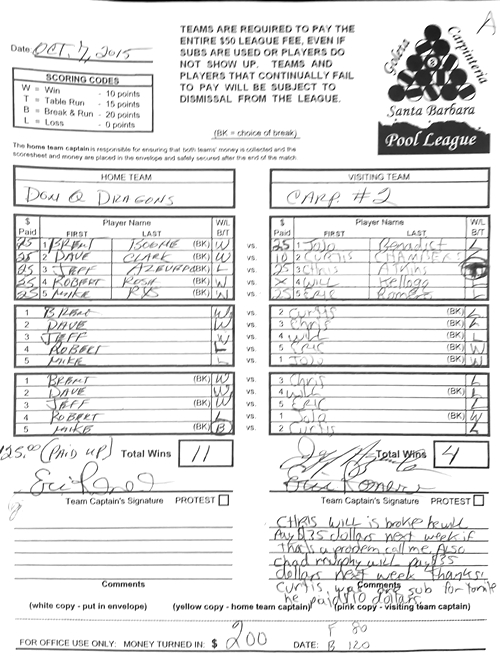 A
Date OCT. 7, 2015
TEAMS ARE REQUIRED TO PAY THE
ENTIRE $50 LEAGUE FEE, EVEN IF
SUBS ARE USED OR PLAYERS DO
NOT SHOW UP. TEAMS AND
PLAYERS THAT CONTINUALLY FAIL
TO PAY WILL BE SUBJECT TO
DISMISSAL FROM THE LEAGUE.
(BK = choice of break)
SCORING CODES
W = Win - 10 points
T = Table Run - 15 points
B = Break & Run - 20 points
L = Loss - 0 points
Goleta Carpinteria
8
Santa Barbara
Pool League
The home team captain is responsible for ensuring that both teams' money is collected and the
scoresheet and money are placed in the envelope and safely secured after the end of the match.
HOME TEAM VISITING TEAM
DON Q DRAGONS CARP. #2
$ Paid Player Name FIRST LAST W/L B/T $ Paid Player Name FIRST LAST W/L B/T
25 1 BRENT BOONE (BK) W vs. 25 1 JoJo Benadict L
25 2 DAVE CLARK (BK) W vs. 10 2 CURTIS CHAMBERS L
25 3 JEFF (BK) L vs. 25 3 Chris Atkins
25 4 ROBERT (BK) W vs. X 4 Will Kellogg L
25 5 MIKE (BK) L vs. 25 5 ERIC
1 BRENT W vs. 2 Curtis (BK) L
2 DAVE W vs. 3 Chris (BK) L
3 JEFF W vs. 4 Will (BK) L
4 ROBERT L vs. 5 ERIC (BK) W
5 MIKE L vs. 1 JoJo (BK) W
1 BRENT (BK) W vs. 3 Chris L
2 DAVE W vs. 4 Will (BK) L
3 JEFF (BK) W vs. 5 ERIC L
4 ROBERT L vs. 1 JoJo (BK) W
5 MIKE (BK) B vs. 2 Curtis L
125.00 (PAID UP) Total Wins 11 Total Wins 4
Team Captain's Signature PROTEST Team Captain's Signature PROTEST
CHRIS WILL is broke he will
Pay $35 dollars next week if
Thats a problem call me. Also
Chad murphy will pay $35
dollars next week. Thanks!
Curtis was sub for
he paid $10 dollars
Comments Comments
(white copy - put in envelope) (yellow copy - home team captain) (pink copy - visiting team captain)
FOR OFFICE USE ONLY: MONEY TURNED IN: $ 200 DATE: F 80
B 120